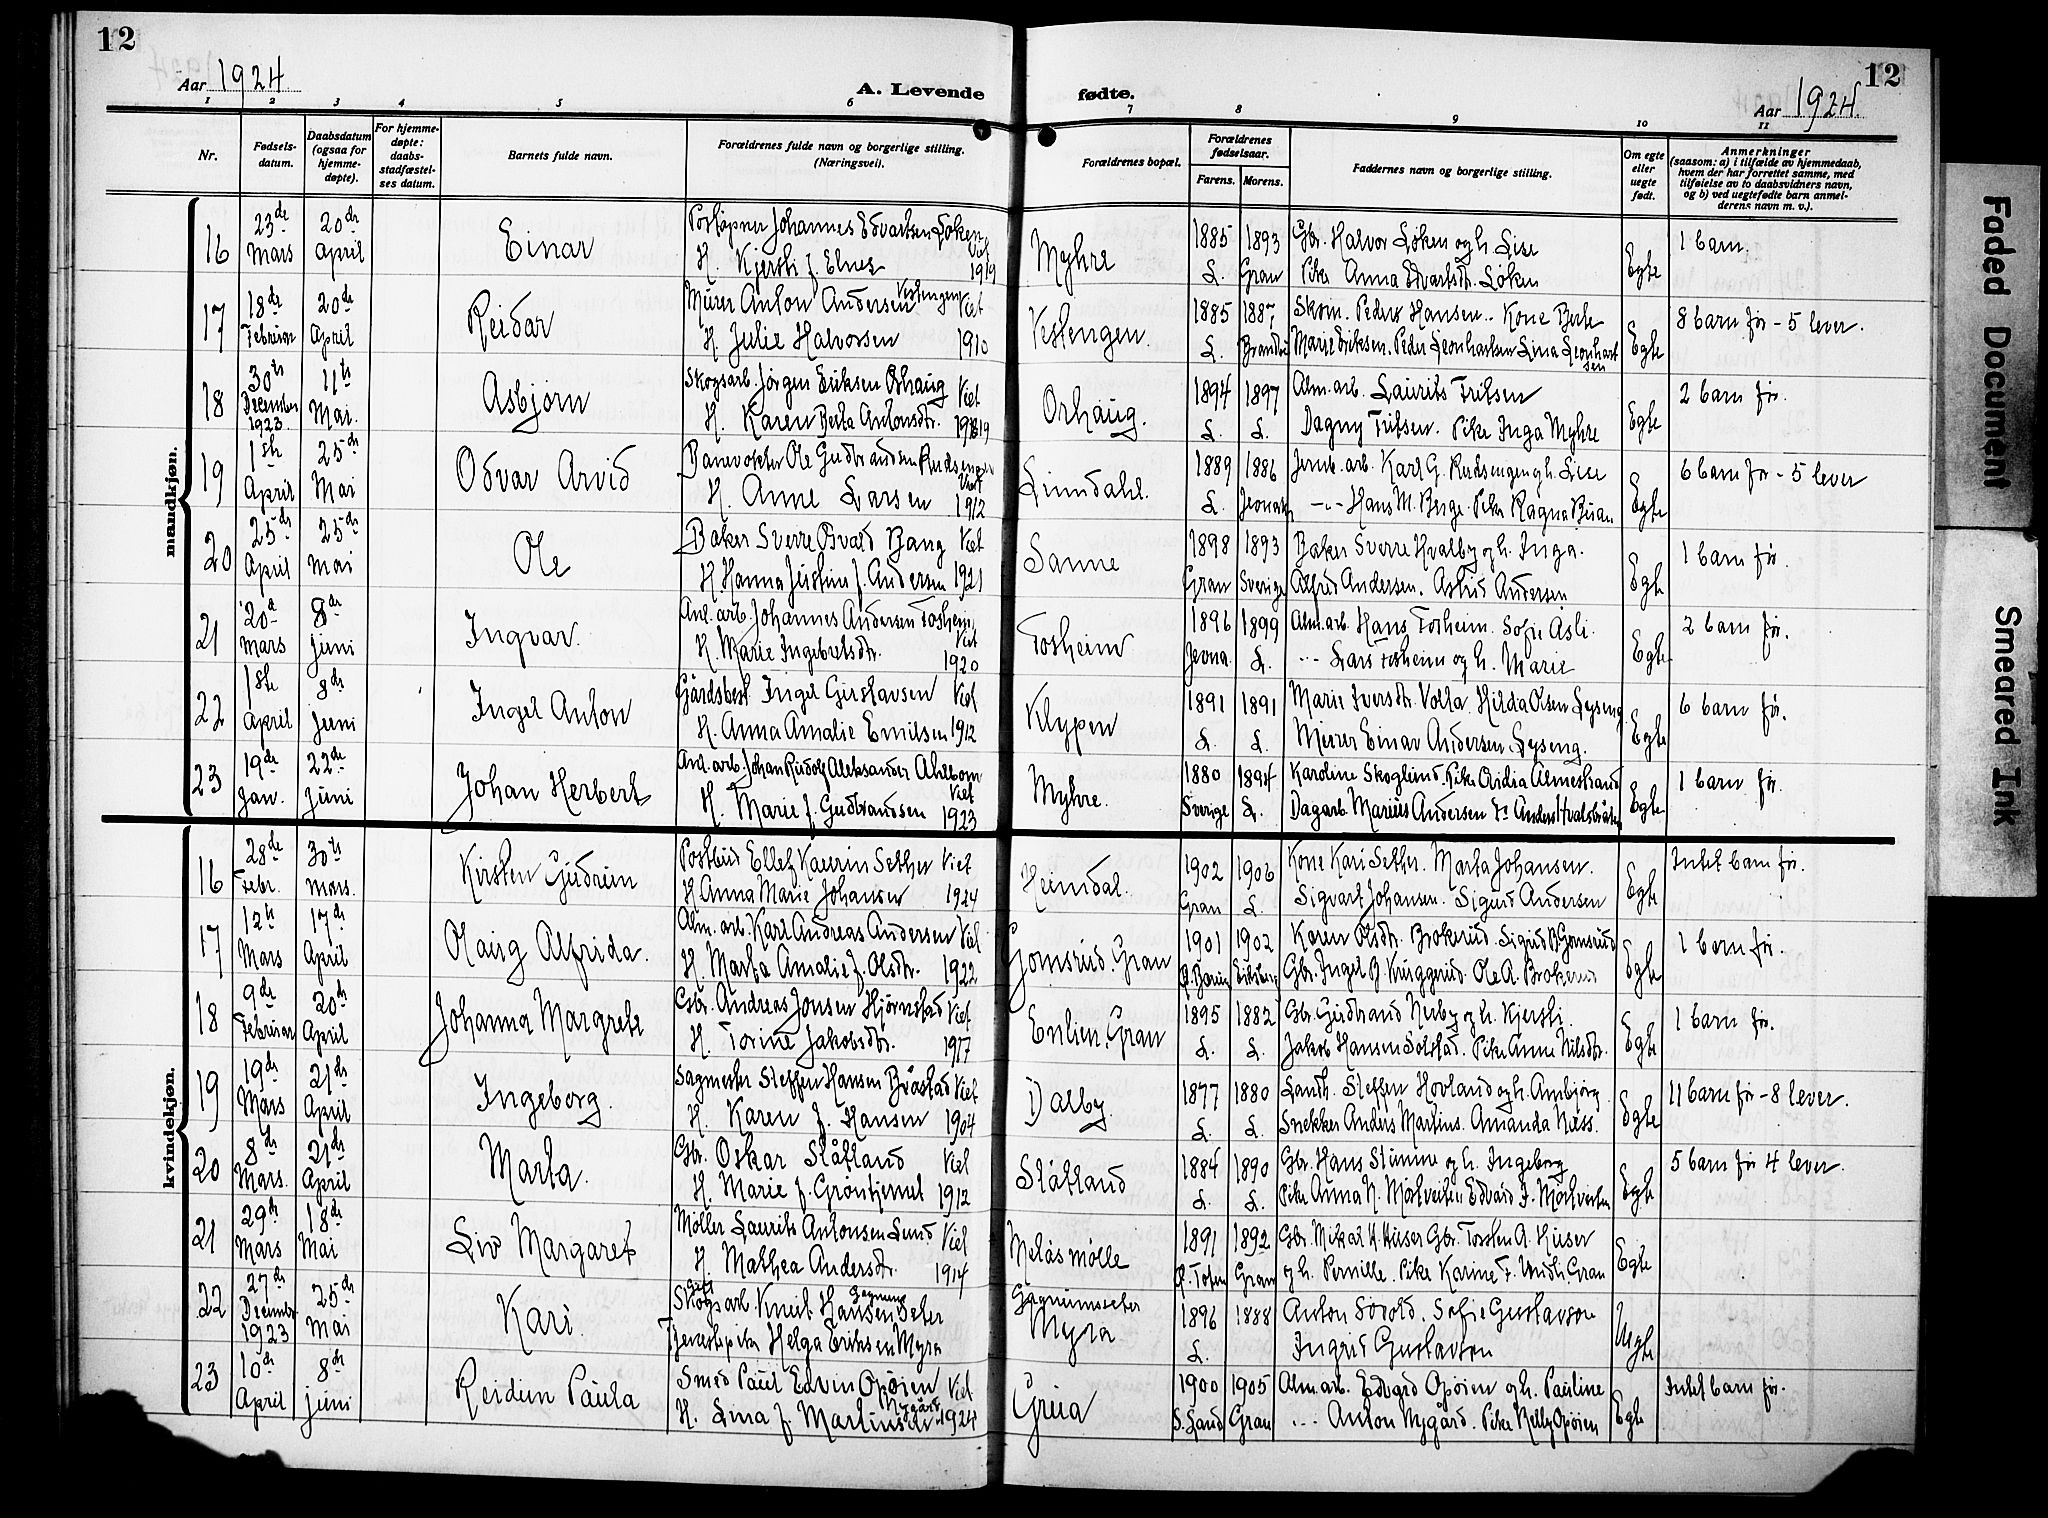 12
Aar 1924.
A. Levende
fødte.
Aar 1924.
12
1 2 3 4 5 6 7 8 9 10 11
Nr.
Fødsels-
datum.
Daabsdatum
(ogsaa for
hjemme-
døpte).
For hjemme-
døpte:
daabs-
stadfæstel-
ses datum.
Barnets fulde navn.
Forældrenes fulde navn og borgerlige stilling.
(Næringsvei).
Forældrenes bopæl.
Forældrenes
fødselsaar.
Farens. Morens.
Faddernes navn og borgerlige stilling.
Om egte
eller
uegte
født.
Anmerkninger
(saasom: a) i tilfælde av hjemmedaab,
hvem der har forrettet samme, med
tilføielse av to daabsvidners navn,
og b) ved uegtefødte barn anmel-
derens navn m. v.).
mandkjøn.
16 23de Mars 20de April Einar
Postøpner Johannes Edvartsen Løken Viet
H. Kjersti f. Elnes 1919
Myhre 1885 L. 1893 Gran
Gbr. Halvor Løken og h. Lise
Pike Anna Edvartsdtr. Løken
Egte 1 barn.
17 18de Februar 20de April Reidar
Murer Anton Andersen Vestengen Viet
H. Julie Halvorsen 1910
Vestengen. 1885 L. 1887
Skom. Peder Hansen. Kone Berte
Marie Eriksen. Peder Leonhartsen Lina Leonhartsen
Egte 8 barn før - 5 lever.
18 30te December 1923. 11te Mai. Asbjørn
Skogsarb. Jørgen Eriksen Orhaug Viet
H. Karen Berta Antonsdtr. 1919
Orhaug. 1894 L. 1897 L.
Alm. arb. Laurits Fritsen
Dagny Fritsen. Pike Inga Myhre
Egte 2 barn før.
19 1ste April 25de Mai Odvar Arvid
Banevokter Ole Gudbrandsen Rudsengen Viet
H. Anne Larsen 1912
Lundahl. 1889 L. 1886
Jernb. arb. Karl G. Rudsengen og h. Lise
-"- Hans M. Berge. Pike Ragna Buan
Egte 6 barn før - 5 lever
20 25de April 25de Mai Ole
Baker Sverre Bang Viet
H. Hanna Justine f. Andersen 1921
Sanne 1898 Gran 1893 Sverige
Baker Sverre Hvalby og h. Inga.
Alfred Andersen. Astrid Andersen
Egte 1 barn før.
21 20de Mars 8de Juni Ingvar.
Anl. arb. Johannes Andersen Tosheim Viet
H. Marie Ingebretsdtr. 1920
Tosheim 1896 Jevna. 1899 L.
Alm. arb. Hans Tosheim. Sofie Asli.
-"- Lars Tosheim og h. Marie
Egte 2 barn før.
22 1ste April 8de Juni Ingel Anton
Gårdsbest. Ingel Gustavsen Viet
H. Anna Amalie Emilsen 1912
Klypen 1891 L. 1891 L.
Marie Iversdtr. Volla. Hilda Olsen Lyseng
Murer Einar Andersen Lyseng.
Egte 6 barn før.
23 19de Jan. 22de Juni Johan Herbert
Anl. arb. Johan Rudolf Aleksander Ahlbom Viet
H. Marie f. Gudbrandsen 1923
Myhre. 1880 Sverige 1894 L.
Karoline Skoglund. Pike Ovidia Almestrand
Dagarb. Marius Andersen Anders Hvalsbråten
Egte 1 barn før.
kvindekjøn.
16 28de Febr. 30te Mars. Kirsten Gudrun
Postbud Ellef Kaurin Sether Viet
H. Anna Marie Johansen 1924
Heimdal. 1902 Gran 1906 L.
Kone Kari Sether. Marta Johansen.
Sigvart Johansen. Sigurd Andersen
Egte Intet barn før.
17 12te Mars 17de April Olaug Alfrida.
Alm. arb. Karl Andreas Andersen Viet
H. Marta Amalie f. Olsdtr. 1922
Gomsrud. Gran 1901 1902
Karen Olsdtr. Brokerud. Sigrid B. Gomsrud
Gbr. Ingel B. Kruggerud. Ole A. Brokerud
Egte 1 barn før.
18 9de Februar 20de April Johanna Margrete
Gbr. Andreas Jonsen Hjørnstad Viet
H. Torine Jakobsdtr. 1917
Enlien. Gran 1895 L. 1882 L.
Gbr. Gudbrand Nerby og h. Kjersti.
Jakob Hansen Solstad. Pike Anne Nilsdtr.
Egte 1 barn før.
19 19de Mars 21de April Ingeborg.
Sagmester Steffen Hansen Bråstad Viet
H. Karen f. Hansen 1904
Dalby. 1877 L. 1880 L.
Landh. Steffen Hovland og h. Ambjørg
Snekker Anders Martins. Amanda Næss.
Egte 11 barn før - 8 lever.
20 8de Mars. 21de April Marta.
Gbr. Oskar Slåtland Viet
H. Marie f. Grøntjernet 1912
Slåtland 1884 L. 1890 L.
Gbr. Hans Stumne og h. Ingeborg
Pike Anna N. Mortveiten Edvard J. Mortveiten
Egte 5 barn før 4 lever.
21 29de Mars 18de Mai Liv Margaret
Møller Laurits Antonsen Lund Viet
H. Mathea Andersdtr. 1914
Melåsmølle 1891 Ø. Toten 1892 Gran
Gbr. Mikal H. Huser Gbr. Torsten A. Huser
og h. Pernille. Pike Karine F. Undli. Gran
Egte
22 27de December 1923 25de Mai Kari.
Gift Skogsarb. Knut Hansen Seter
Tjenestepike Helga Eriksen Myra
Myra 1896 L. 1888
Anton Sovold. Sofie Gustavson
Ingrid Gustavson
Uegte
23 10de April 8de Juni Reidun Paula
Smed Paul Edvin Opøien Viet
H. Lina f. Martinsdtr. Nygård 1924
Grua 1900 S. Land 1905 Gran
Alm. arb. Edvard Opøien og h. Pauline
-"- Anton Nygård. Pike Nelly Opøien
Egte Intet barn før.
Faded Document
Smeared Ink